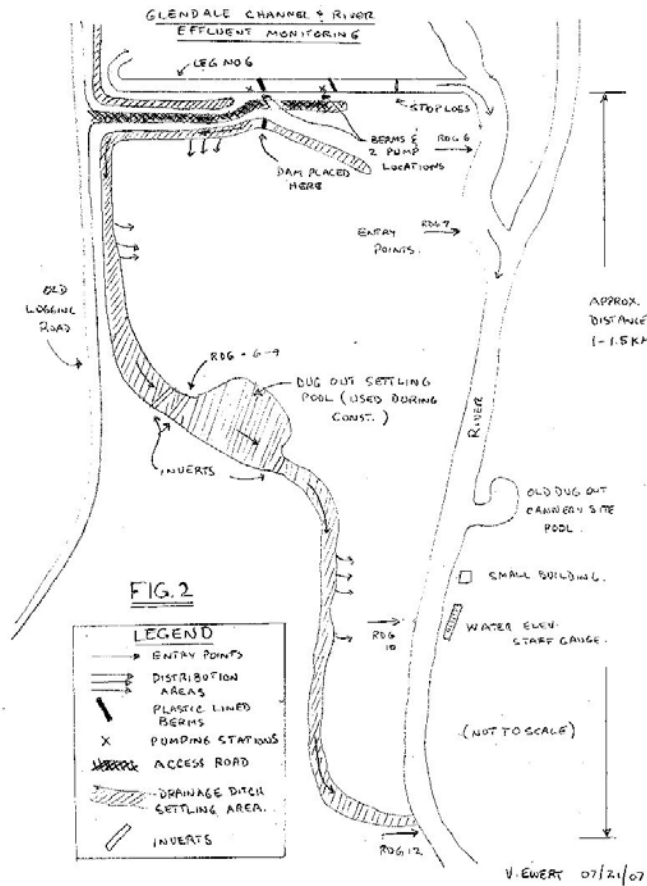 GLENDALE CHANNEL & RIVER
EFFLUENT MONITORING
LEG NO 6
STOP LOGS
BERMS &
2 PUMP
LOCATIONS
RDG 6
DAM PLACED
HERE
RDG 7
ENTRY
POINTS.
OLD
LOGGING
ROAD
APPROX.
DISTANCE
1-1.5 KM
RDG - 6-9
DUG OUT SETTLING
POOL (USED DURING
CONST.)
INVERTS
RIVER
OLD DUG OUT
CANNERY SITE
POOL.
SMALL BUILDING.
WATER ELEV.
STAFF GAUGE.
RDG
10
(NOT TO SCALE)
FIG. 2
LEGEND
ENTRY POINTS
DISTRIBUTION
AREAS
PLASTIC LINED
BERMS
X PUMPING STATIONS
ACCESS ROAD
DRAINAGE DITCH
SETTLING AREA.
INVERTS
RDG 12
V. EWERT 07/21/07